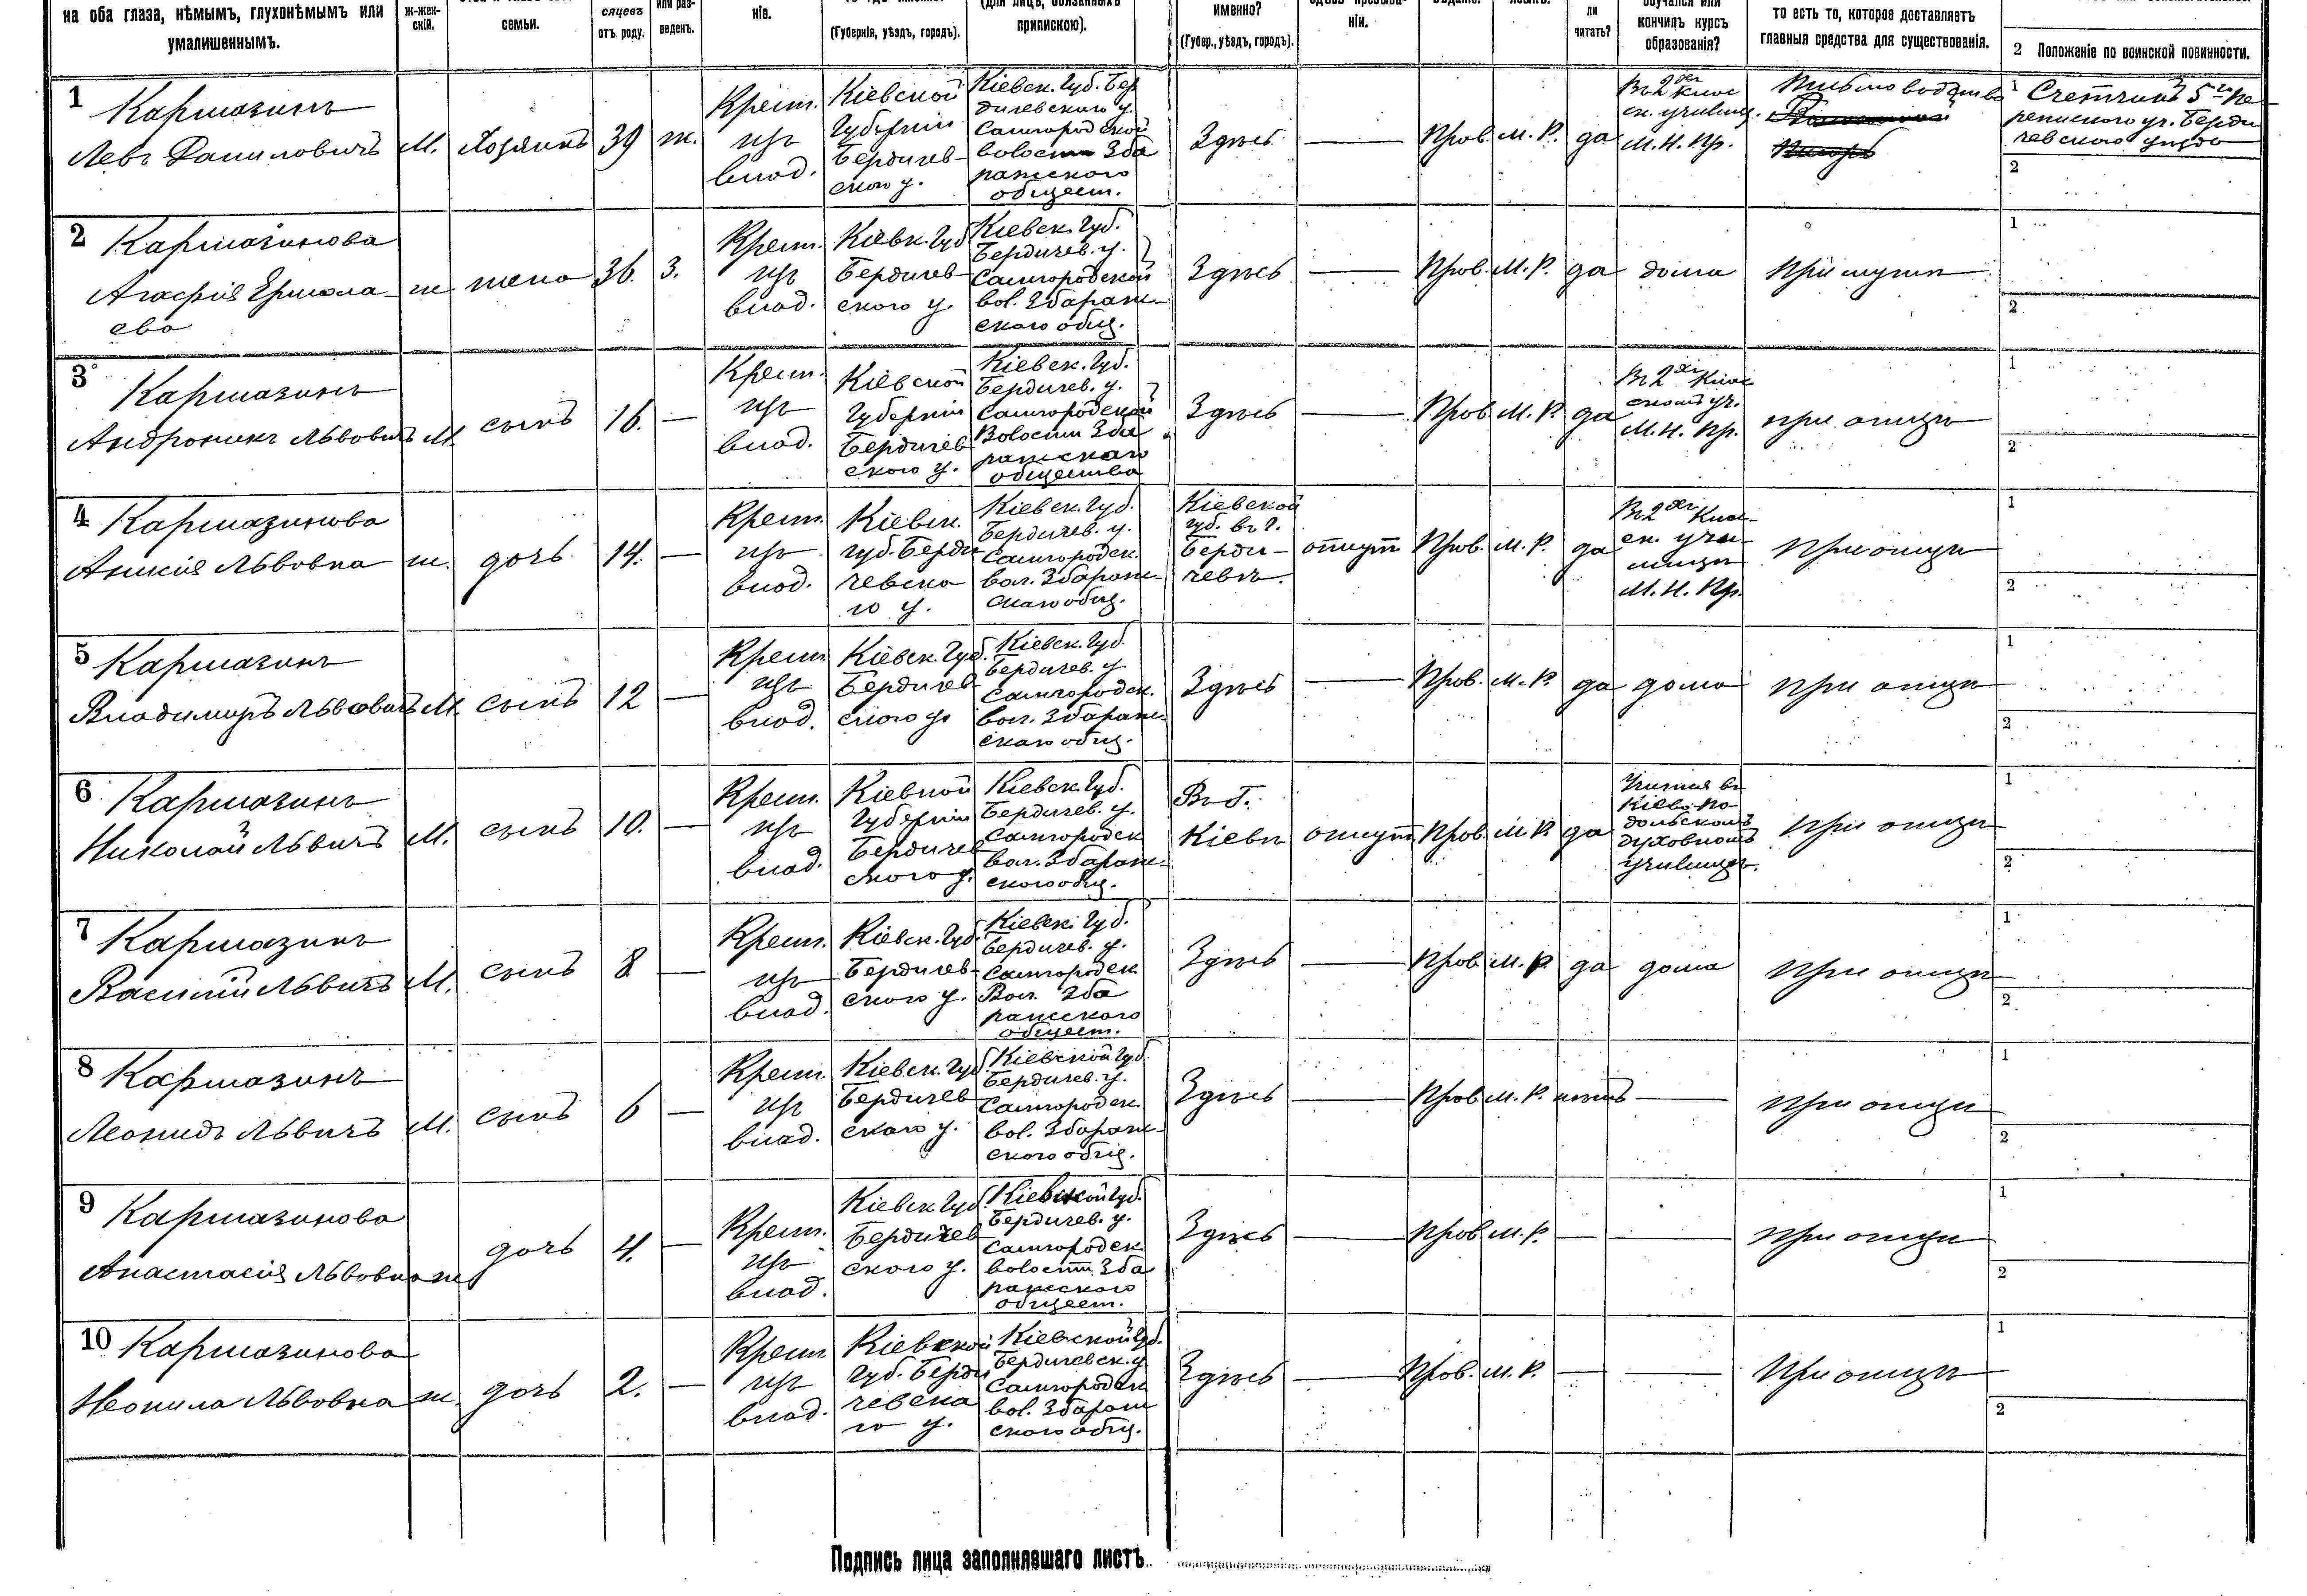 на оба глаза, нѣмымъ, глухонѣмымъ или
умалишеннымъ.
ж-жен-
скій.
семьи.
сяцевъ
отъ роду.
или раз-
веденъ.
ніе.
(Губернія, уѣздъ, городъ).
(для лицъ, обязанныхъ
припискою).
именно?
(Губер., уѣздъ, городъ).
ніи.
ли
читать?
обучался или
кончилъ курсъ
образованія?
то есть то, которое доставляетъ
главныя средства для существованія.
2 Положеніе по воинской повинности.
1 Кармазинъ
Левъ Даниловичъ
М.
Хозяинъ
39
ж.
Крест.
изъ
влад.
Кіевской
Губерніи
Бердичев-
ского у.
Кіевск. Губ. Бер
дичевского у.
Самгородской
волости Зба
ражского
общест.
Здѣсь
—
Прав.
М. Р.
да
Въ 2 кл
ск. училищ.
М. Н. Пр.
Письмоводство
1 Счетчикъ 5го пе
реписного уч. Берди
чевского уѣзда
2
2 Кармазинова
Агафія Ермола
ева
ж
жена
36.
З.
Крест.
изъ
влад.
Кіевк. Губ
Бердичев-
ского у.
Кіевск. Губ.
Бердичев. у.
Самгородской
вол. Збараж-
ского общ.
Здѣсь
—
Прав.
М. Р.
да
дома
При мужѣ
1
2
3 Кармазинъ
Андроникъ Львовичъ
М.
сынъ
16.
—
Крест.
изъ
влад.
Кіевской
Губерніи
Бердичев
ского у.
Кіевск. Губ.
Бердичев. у.
Самгородской
Волости Зба
ражскаго
общества
Здѣсь
—
Прав.
М. Р.
да
Въ 2хъ Клас
сномъ уч.
М. Н. Пр.
при отцѣ
1
2
4 Кармазинова
Анисія Львовна
ж.
дочь
14.
—
Крест.
изъ
влад.
Кіевск.
губ. Берди
чевска
го у.
Кіевск. Губ.
Бердичев. у.
Самгородск.
вол. Збараж-
скаго общ.
Кіевской
губ. въ г.
Берди-
чевѣ.
отсут
Прав.
М. Р.
да
Въ 2хъ Клас-
ск. учи-
лищѣ
М. Н. Пр.
При отцѣ
1
2
5 Кармазинъ
Владимиръ Львовичъ
М.
сынъ
12
—
Крест.
изъ
влад.
Кіевск. Губ.
Бердичев
ского у
Кіевск. Губ.
Бердичев. у
Самгородск.
вол. Збараж-
скаго общ.
Здѣсь
—
Прав.
М. Р.
да
дома
При отцѣ
1
2
6 Кармазинъ
Николай Львичъ
М.
сынъ
10.
—
Крест.
изъ
влад.
Кіевской
Губерніи
Бердичев
ского у.
Кіевск. Губ.
Бердичев. у.
Самгородск
вол. Збараж-
ского общ.
Въ Г.
Кіевѣ
отсут
Прав.
М. Р
да
Учится въ
Кіево-По
дольскомъ
духовномъ
училищѣ.
При отцѣ
1
2
7 Кармазинъ
Василій Львичъ
М.
сынъ
8
—
Крест.
изъ
влад.
Кіевск. Губ.
Бердичев-
ского у.
Кіевск. Губ.
Бердичев. у.
Самгородск
Вол. Зба
ражского
общест.
Здѣсь
—
Прав
М. Р.
да
дома
При отцѣ
1
2
8 Кармазинъ
Леонидъ Львичъ
М.
сынъ
6
—
Крест.
изъ
влад.
Кіевск. Губ
Бердичев
скаго у.
Кіевской Губ.
Бердичев. у.
Самгородск.
вол. Збараж-
ского общ.
Здѣсь
—
Прав
М. Р.
нѣтъ
—
При отцѣ
1
2
9 Кармазинова
Анастасія Львовна
ж
дочь
4.
—
Крест.
изъ
влад.
Кіевск Губ.
Бердичев
ского у.
Кіевской Губ.
Бердичев. у.
Самгородск
волости Зба
ражского
общест.
Здѣсь
—
Прав
М. Р.
—
—
При отцѣ
1
2
10 Кармазинова
Неонила Львовна
ж
дочь
2.
—
Крест
изъ
влад.
Кіевской
Губ. Берди
чевска
го у.
Кіевской Губ.
Бердичевск. у
Самгородск
вол. Збараж
ского общ.
Здѣсь
—
Прав.
М. Р.
—
—
При отцѣ
1
2
Подпись лица заполнявшаго листъ